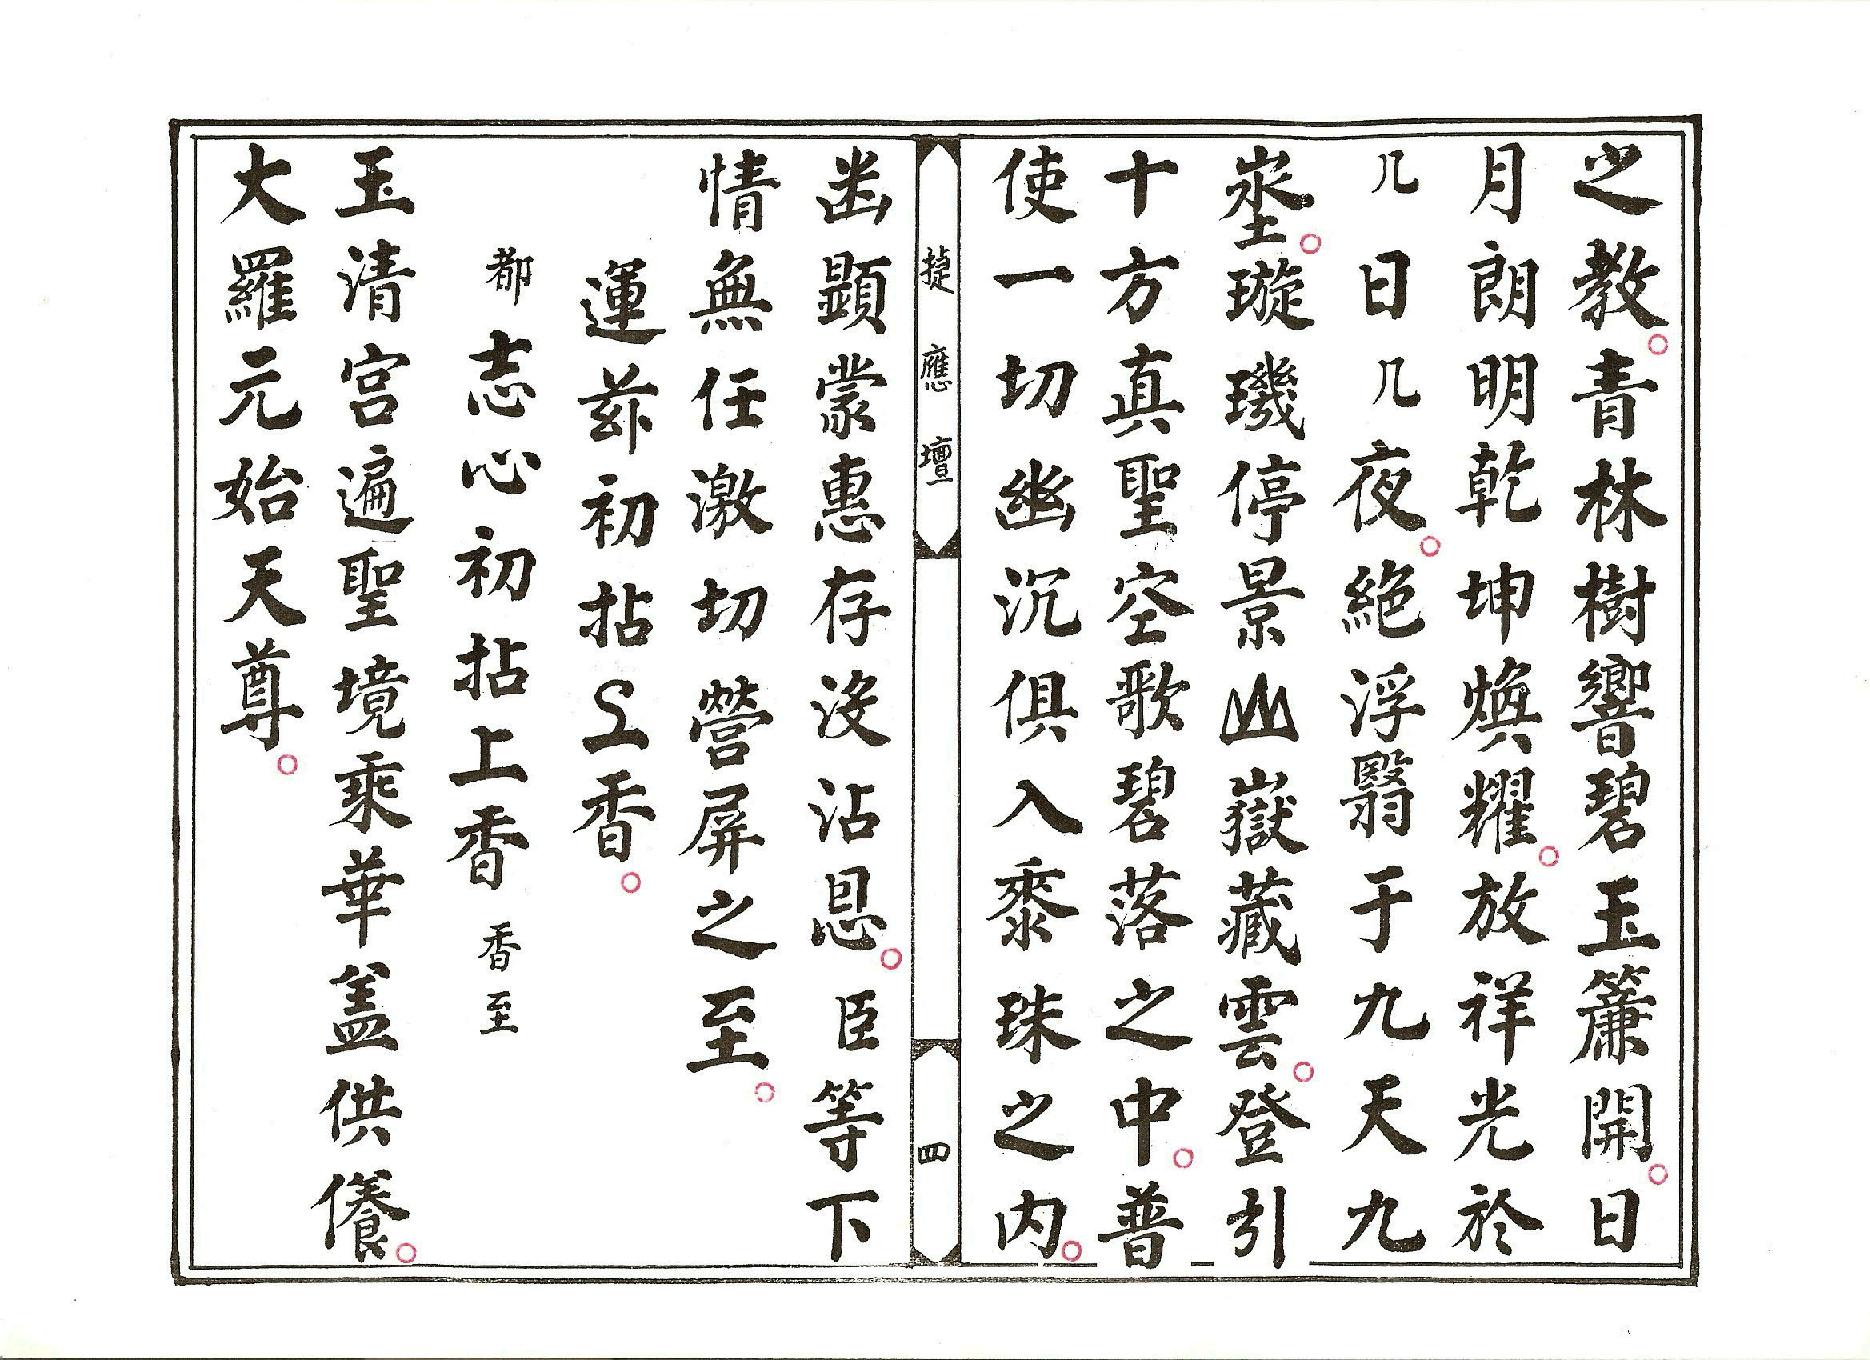 之教。青林樹響碧玉簫開。日
月朗明乾坤煥耀。放祥光於
几日几夜。絕浮翳于九天九
垄。璇璣停景山嶽藏雲。登引
十方真聖空歌碧落之中。普
使一切幽沉俱入黍珠之内。
捷應壇
四
幽顯蒙惠存沒沾恩。臣等下
情無任激切營屏之至。
運茲初拈上香。
都志心初拈上香香至
玉清宮遍聖境乘華盖供養。
大羅元始天尊。